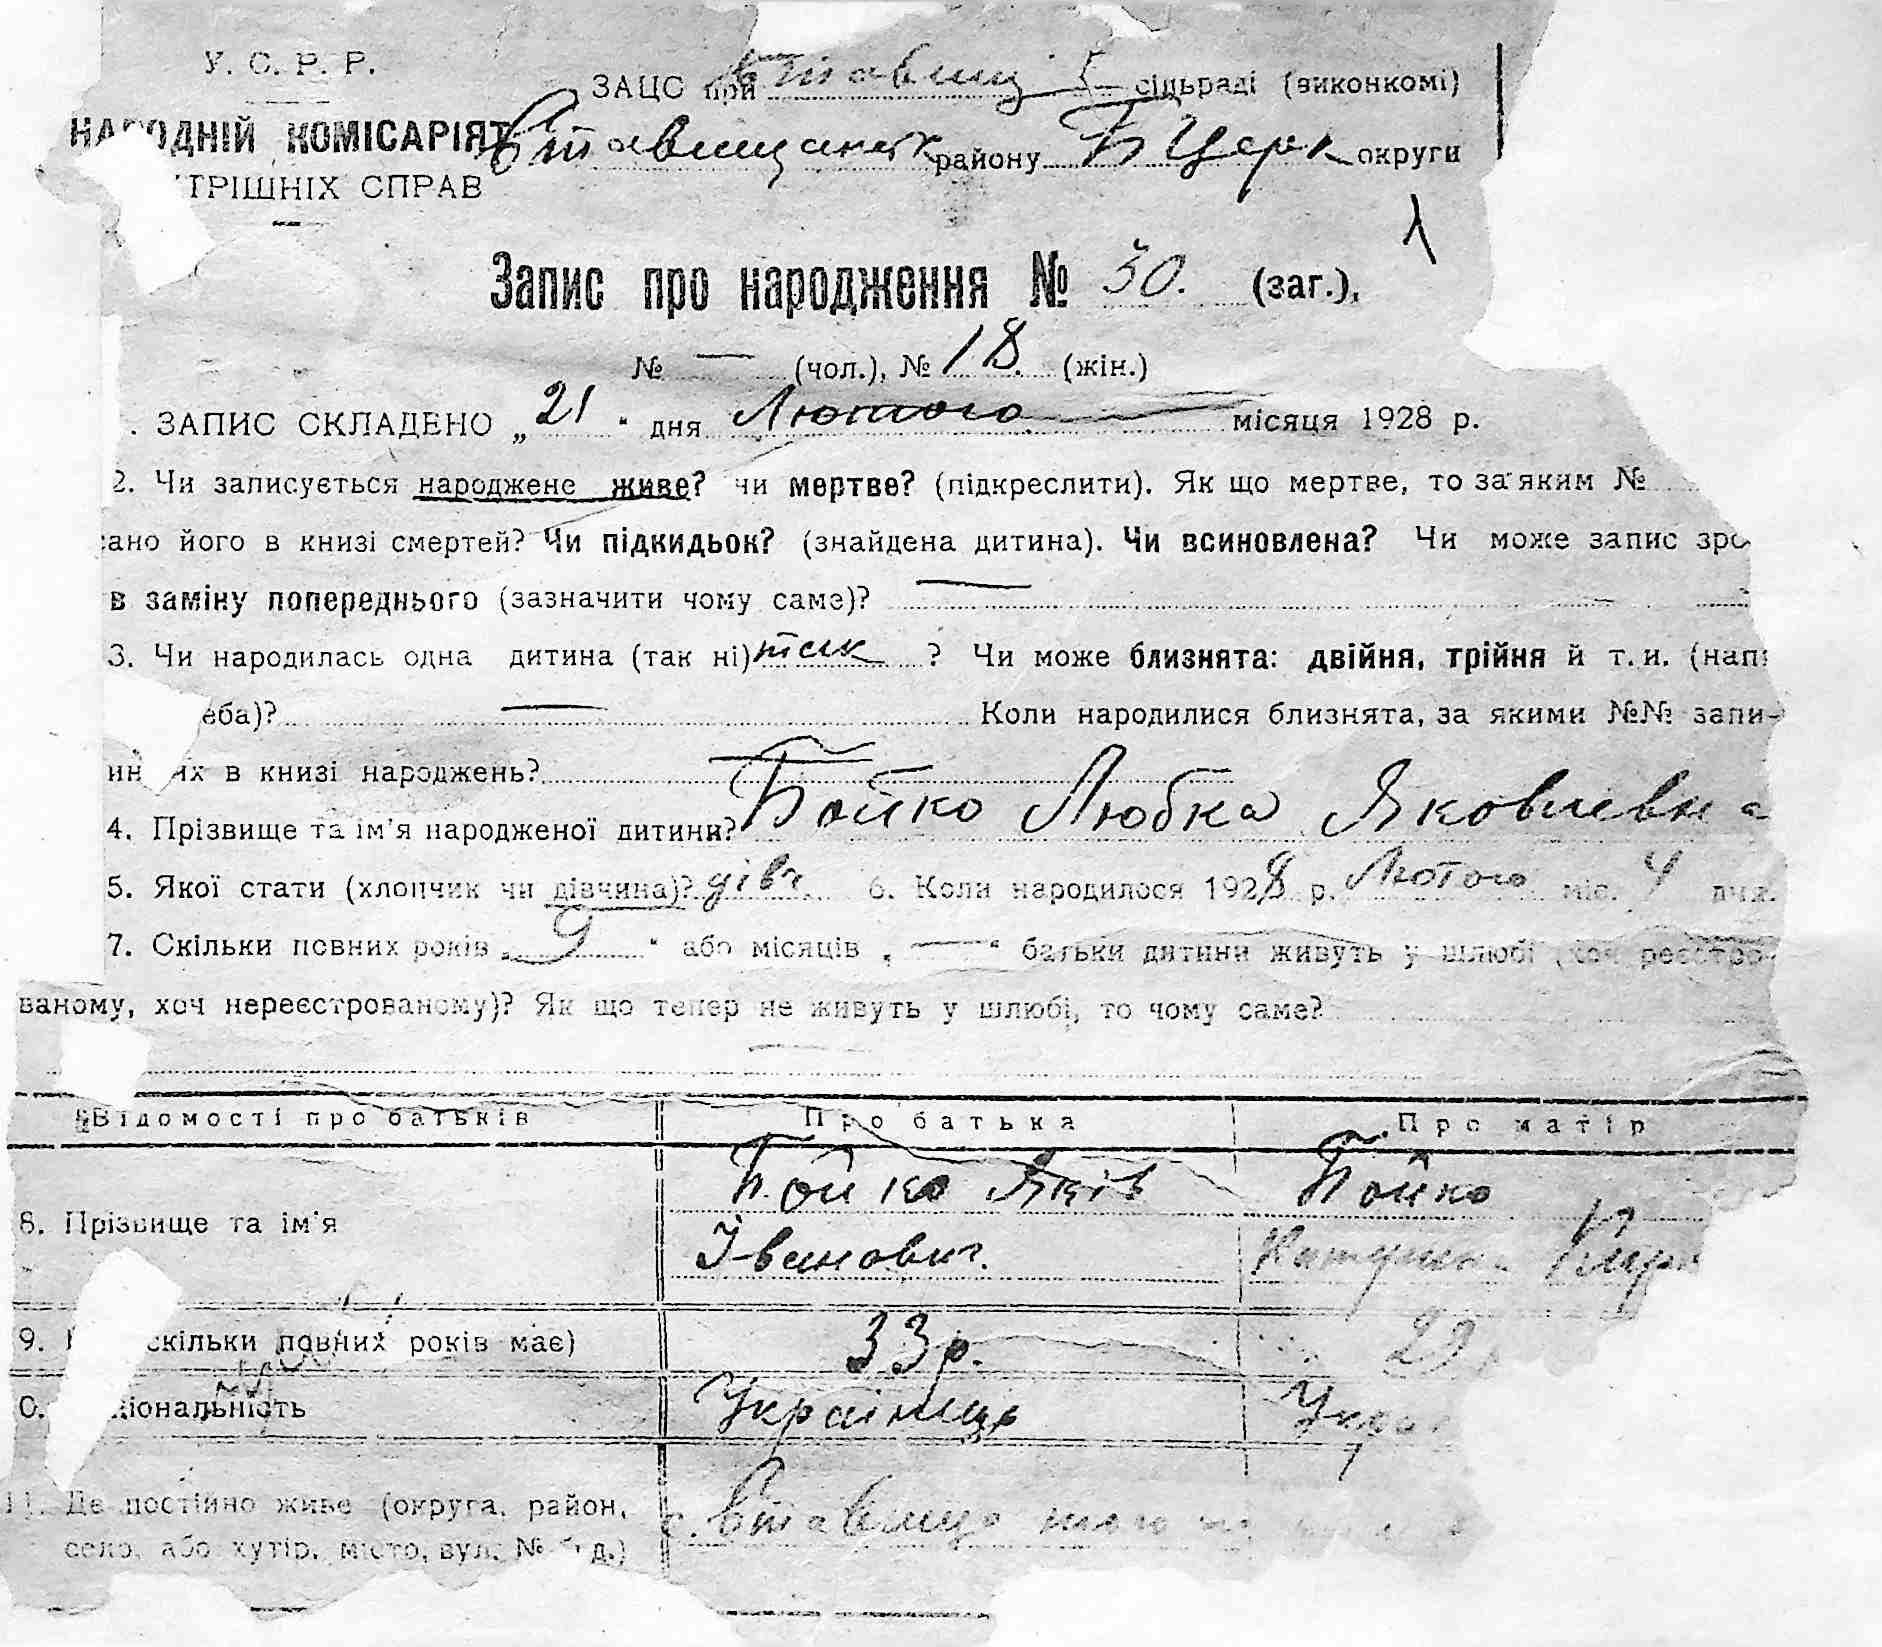 У. С. Р. Р.
ЗАЦС при Ставищ сільраді (виконкомі)
НАРОДНІЙ КОМІСАРІЯТ Ставищанськ району Б Церк округи
ТРІШНІХ СПРАВ
Запис про народження № 30. (заг.),
№ — (чол.), № 18. (жін.)
. ЗАПИС СКЛАДЕНО „21“ дня Лютого місяця 1928 р.
2. Чи записується народжене живе? чи мертве? (підкреслити). Як що мертве, то за яким №
ано його в книзі смертей? Чи підкидьок? (знайдена дитина). Чи всиновлена? Чи може запис зро
в заміну попереднього (зазначити чому саме)? —
3. Чи народилась одна дитина (так ні) так ? Чи може близнята: двійня, трійня й т. и. (напи
еба)? — Коли народилися близнята, за якими №№ запи-
их в книзі народжень? —
4. Прізвище та ім'я народженої дитини? Бойко Любка Яковлевна
5. Якої стати (хлопчик чи дівчина)? дівч. 6. Коли народилося 1928 р. Лютого міс. 4 дня.
7. Скільки повних років „9“ або місяців „—“ батьки дитини живуть у шлюбі (хоч реєстро-
ваному, хоч нереєстрованому)? Як що тепер не живуть у шлюбі, то чому саме?
—
Відомості про батьків Про батька Про матір
Бойко Яків Бойко
8. Прізвище та ім'я
Іванович.
9. скільки повних років має) 33 р.
0. ціональність Українець Укра
11. Де постійно живе (округа, район, с. Ставище
село, або хутір, місто, вул. № д.)